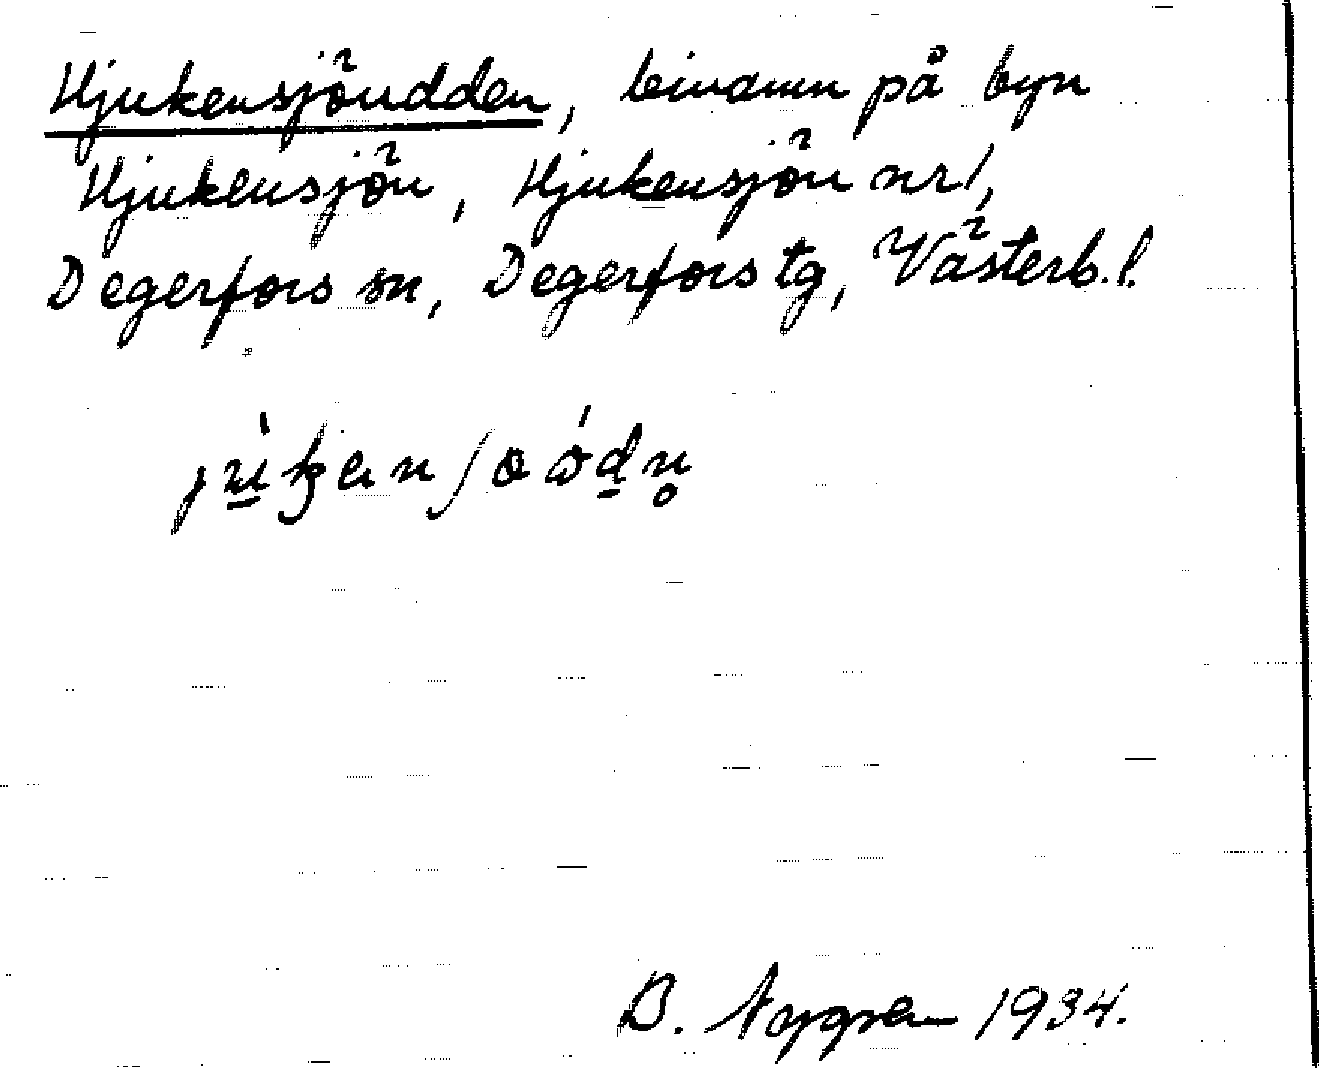 Hjukensjöudden, binamn på byn
Hjukensjön, Hjukensjön nr 1,
Degerfors sn, Degerfors tg, Västerb. l.
B. 1934.